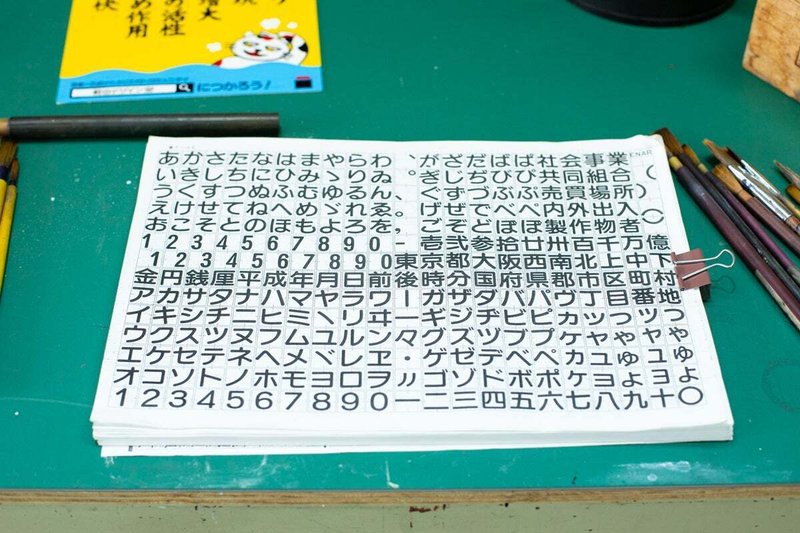 増大
の活性
め作用
快
につかろう！
あかさたなはまやらわ、がざだばぱ社会事業（
いきしちにひみゝりん。ぎじぢびぴ共同組合
うくすつぬふむゆるゐぐずづぶぷ売買場所）
えけせてねへめゞれゑげぜでべぺ内外出入〇
おこそとのほもよろを，ごぞどぼぽ製作物者
1234567890-壱弐参拾廿卅百千万億
1234567890東京都大阪西南北上中下
金円銭厘平成年月日前後時分国府県郡市区町村
アカサタナハマヤラワーガザダバパヴ丁目番地
イキシチニヒミヽリヰギジヂビピカツャッつ
ウクスツヌフムユルン々グズヅブプケヤゅャゃ
エケセテネヘメヾレヱ・ゲゼデベペカユュゅ
オコソトノホモヨロヲ〃ゴゾドボポケョょョょ
1234567890一二三四五六七八九十〇